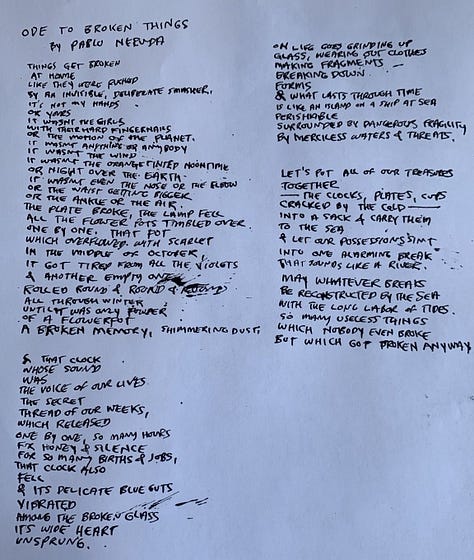 ODE TO BROKEN THINGS
BY PABLO NERUDA
THINGS GET BROKEN
AT HOME
LIKE THEY WERE PUSHED
BY AN INVISIBLE, DELIBERATE SMASHER.
IT'S NOT MY HANDS
OR YOURS
IT WASN'T THE GIRLS
WITH THEIR HARD FINGERNAILS
OR THE MOTION OF THE PLANET.
IT WASNT ANYTHING OR ANYBODY
IT WASN'T THE WIND
IT WASN'T THE ORANGE TINTED NOONTIME
OR NIGHT OVER THE EARTH.
IT WASN'T EVEN THE NOSE OR THE ELBOW
OR THE WAIST GETTING BIGGER
OR THE ANKLE OR THE AIR.
THE PLATE BROKE, THE LAMP FELL
ALL THE FLOWER POTS TUMBLED OVER.
ONE BY ONE. THAT POT
WHICH OVERFLOWED WITH SCARLET
IN THE MIDDLE OF OCTOBER,
IT GOT TIRED FROM ALL THE VIOLETS
& ANOTHER EMPTY ONE
ROLLED ROUND & ROUND & ROUND
ALL THROUGH WINTER
UNTIL IT WAS ONLY POWDER
OF A FLOWERPOT
A BROKEN MEMORY, SHIMMERING DUST.
& THAT CLOCK
WHOSE SOUND
WAS
THE VOICE OF OUR LIVES
THE SECRET
THREAD OF OUR WEEKS,
WHICH RELEASED
ONE BY ONE, SO MANY HOURS
FOR HONEY & SILENCE
FOR SO MANY BIRTHS & JOBS,
THAT CLOCK ALSO
FELL
& ITS DELICATE BLUE GUTS
VIBRATED
AMONG THE BROKEN GLASS
ITS WIDE HEART
UNSPRUNG.
LIFE GOES GRINDING UP
GLASS, WEARING OUT CLOTHES
MAKING FRAGMENTS
BREAKING DOWN
FORMS
& WHAT LASTS THROUGH TIME
IS LIKE AN ISLAND ON A SHIP AT SEA
PERISHABLE
SURROUNDED BY DANGEROUS FRAGILITY
BY MERCILESS WATERS & THREATS.
LET'S PUT ALL OF OUR TREASURES
TOGETHER
— THE CLOCKS, PLATES, CUPS
CRACKED BY THE COLD —
INTO A SACK & CARRY THEM
TO THE SEA
& LET OUR POSSESSIONS SINK
INTO ONE ALARMING BREAK
THAT SOUNDS LIKE A RIVER.
MAY WHATEVER BREAKS
BE RECONSTRUCTED BY THE SEA
WITH THE LONG LABOR OF TIDES.
SO MANY USELESS THINGS
WHICH NOBODY EVEN BROKE
BUT WHICH GOT BROKEN ANYWAY